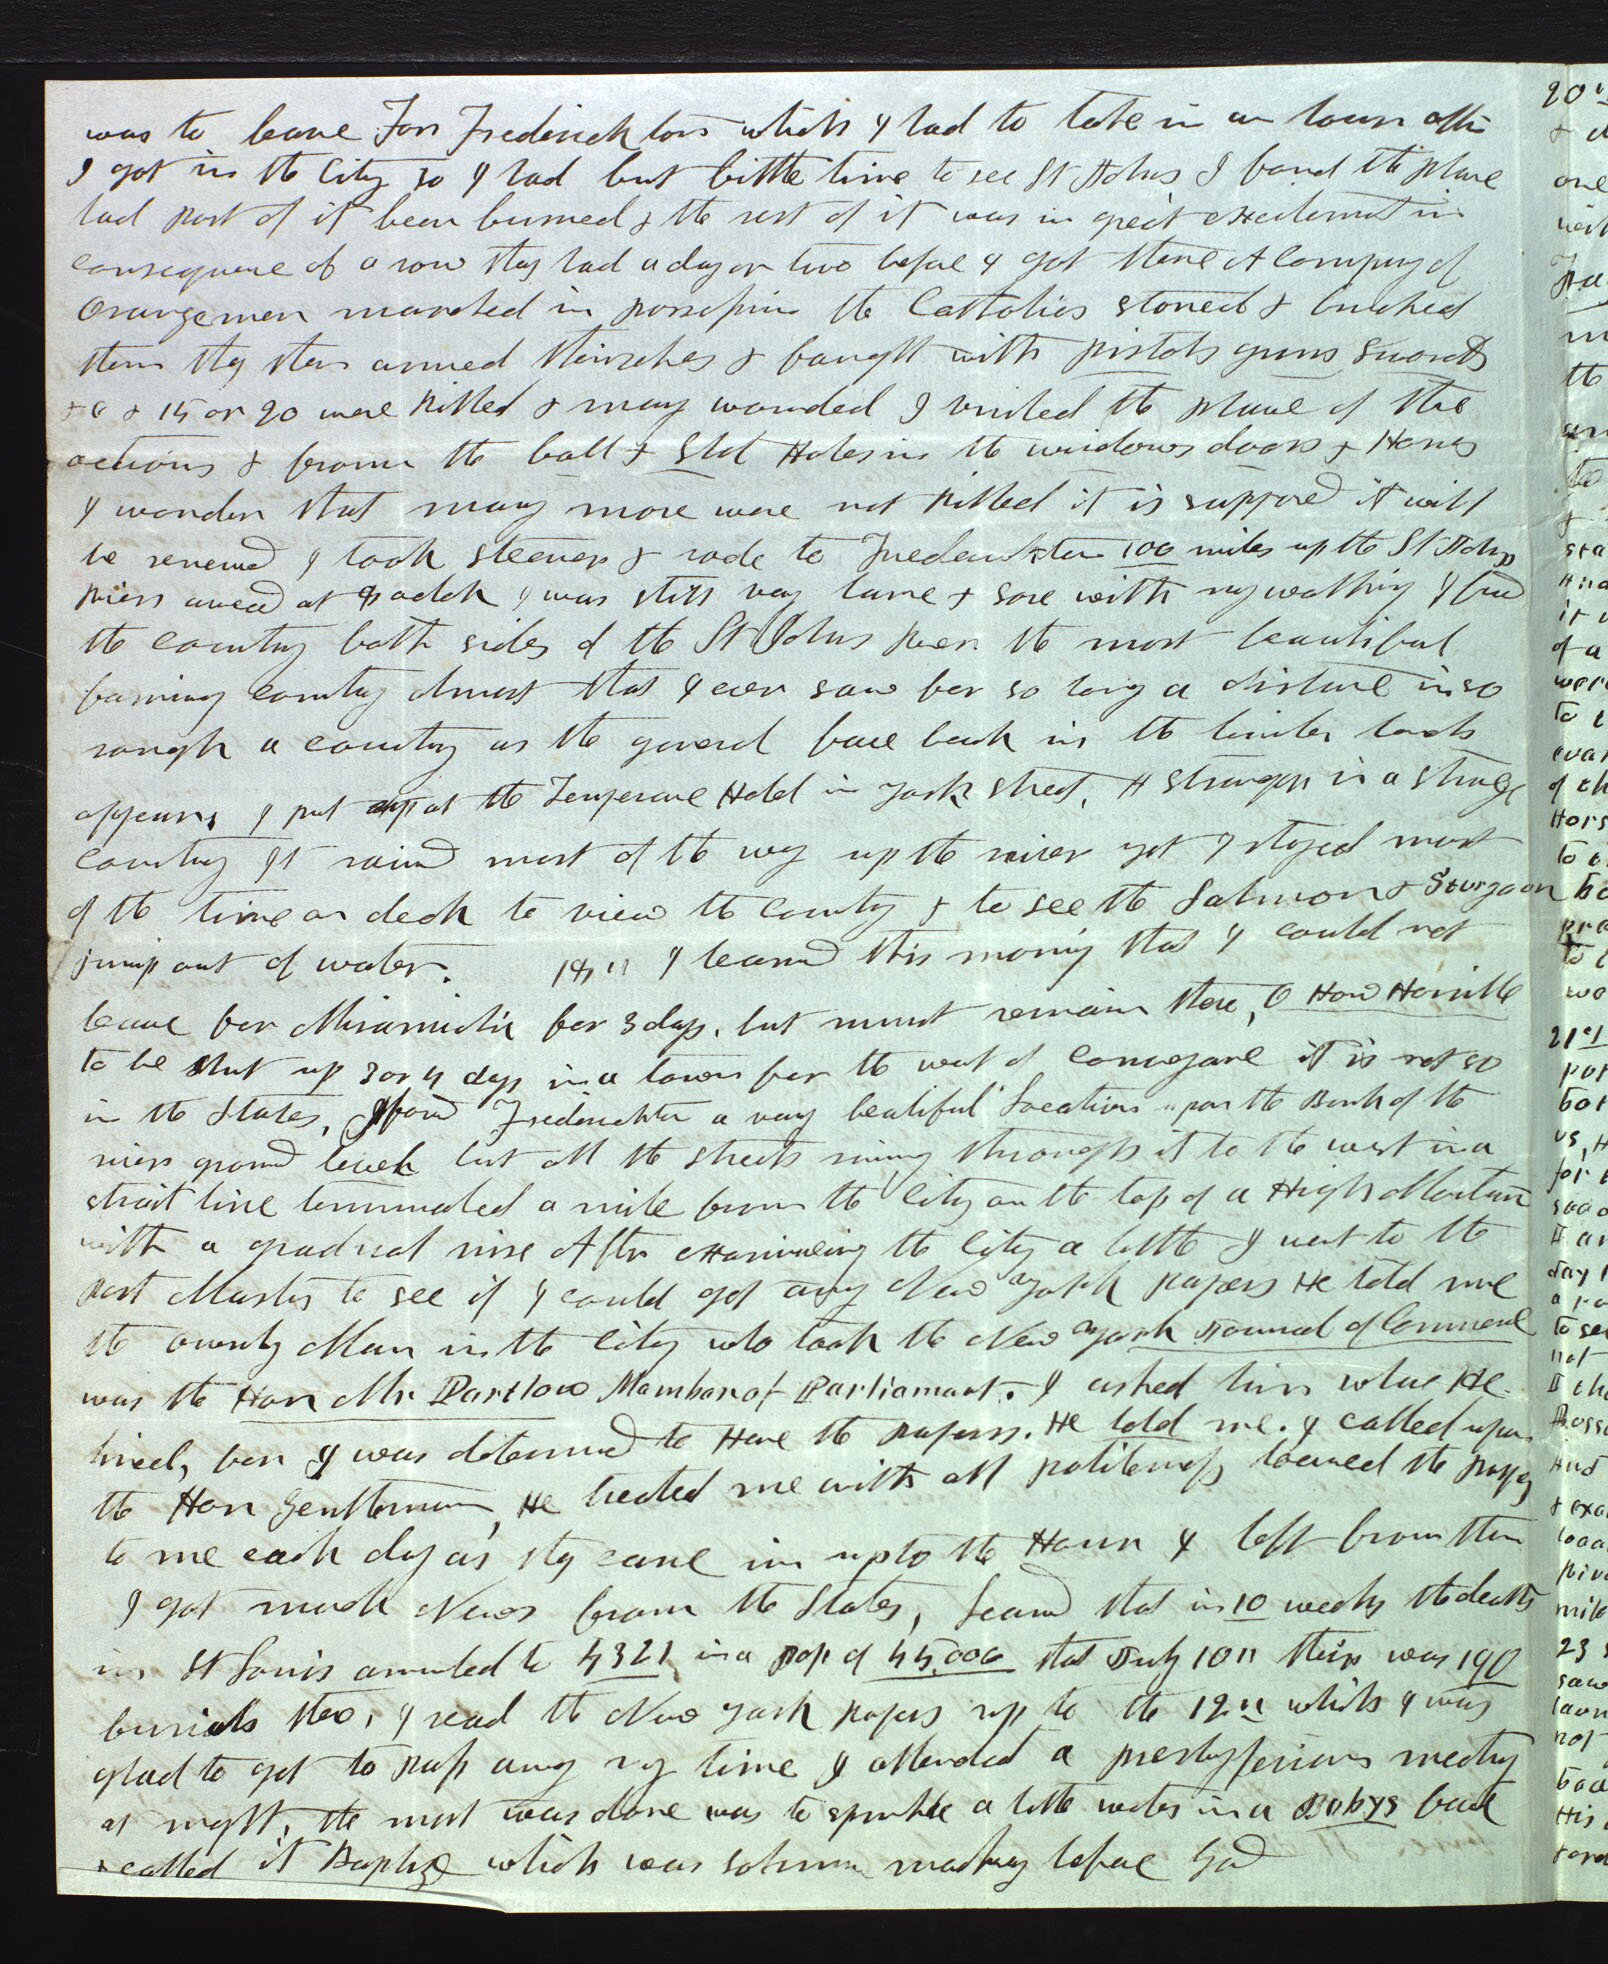 was to leave For Frederickton which I had to take in an hour after
I got in the City so I had but little time to see St Johns I found the place
had part of it been burned & the rest of it was in great excitement in
consequence of a row they had a day or two before I got there A Company of
Orangemen marched in possession the Catholics stoned & bricked
them they then armed themselves & faught with pistols guns swords
&c & 15 or 20 were killed & many wounded I visited the place of the
actions & from the ball & Shot Holes in the windows doors & Houses
I wonder that many more were not killed it is supposed it will
be renewed I took steemer & rode to Frederickton 100 miles up the St Johns
River arived at 8 oclok I was still vary lame & sore with my walking I found
the country both sides of the St Johns River the most beautiful
farming country almost that I ever saw for so long a distance in so
rough a country as the general face back in the timber lands
appears I put up at the Temperance Hotel in York street, A stranger in a strange
Country It raind most of the way up the river yet I stayed most
of the time on deck to view the County & to see the Salmon & Sturgeon
jump out of water. 18th I learned this morning that I could not
leave for Miramichi for 3 days. but must remain there, O How Horrible
to be shut up 3 or 4 days in a town for the want of conveyance it is not so
in the States, I found Frederickton a vary beatiful Location upon the Bank of the
river ground level but all the streets runing through it to the west in a
strait line terminated a mile from the City on the top of a High Mountain
with a gradual rise After examineing the City a little I went to the
Post Master to see if I could get any New York papers He told me
the ownly Man in the City who took the New York Journal of Commerce
was the Hon Mr Partlow Member of Parliament. I asked him whare He
lived, for I was determed to Have the papers. He told me. I called upon
the Hon Gentleman, He treated me with all politeness loaned the papers
to me each day as they came in up to the Hour I left from them
I got much News from the States, Learnd that in 10 weeks the deaths
in St Louis amounted to 4321 in a pop of 45,000 that July 10th their was 190
burials thare, I read the New York papers up to the 12th which I was
glad to get to pass away my time I attended a presbyterians meeting
at night, the most was done was to sprinkle a little water in a Babys face
& called it Baptize which was solemn mockery before God